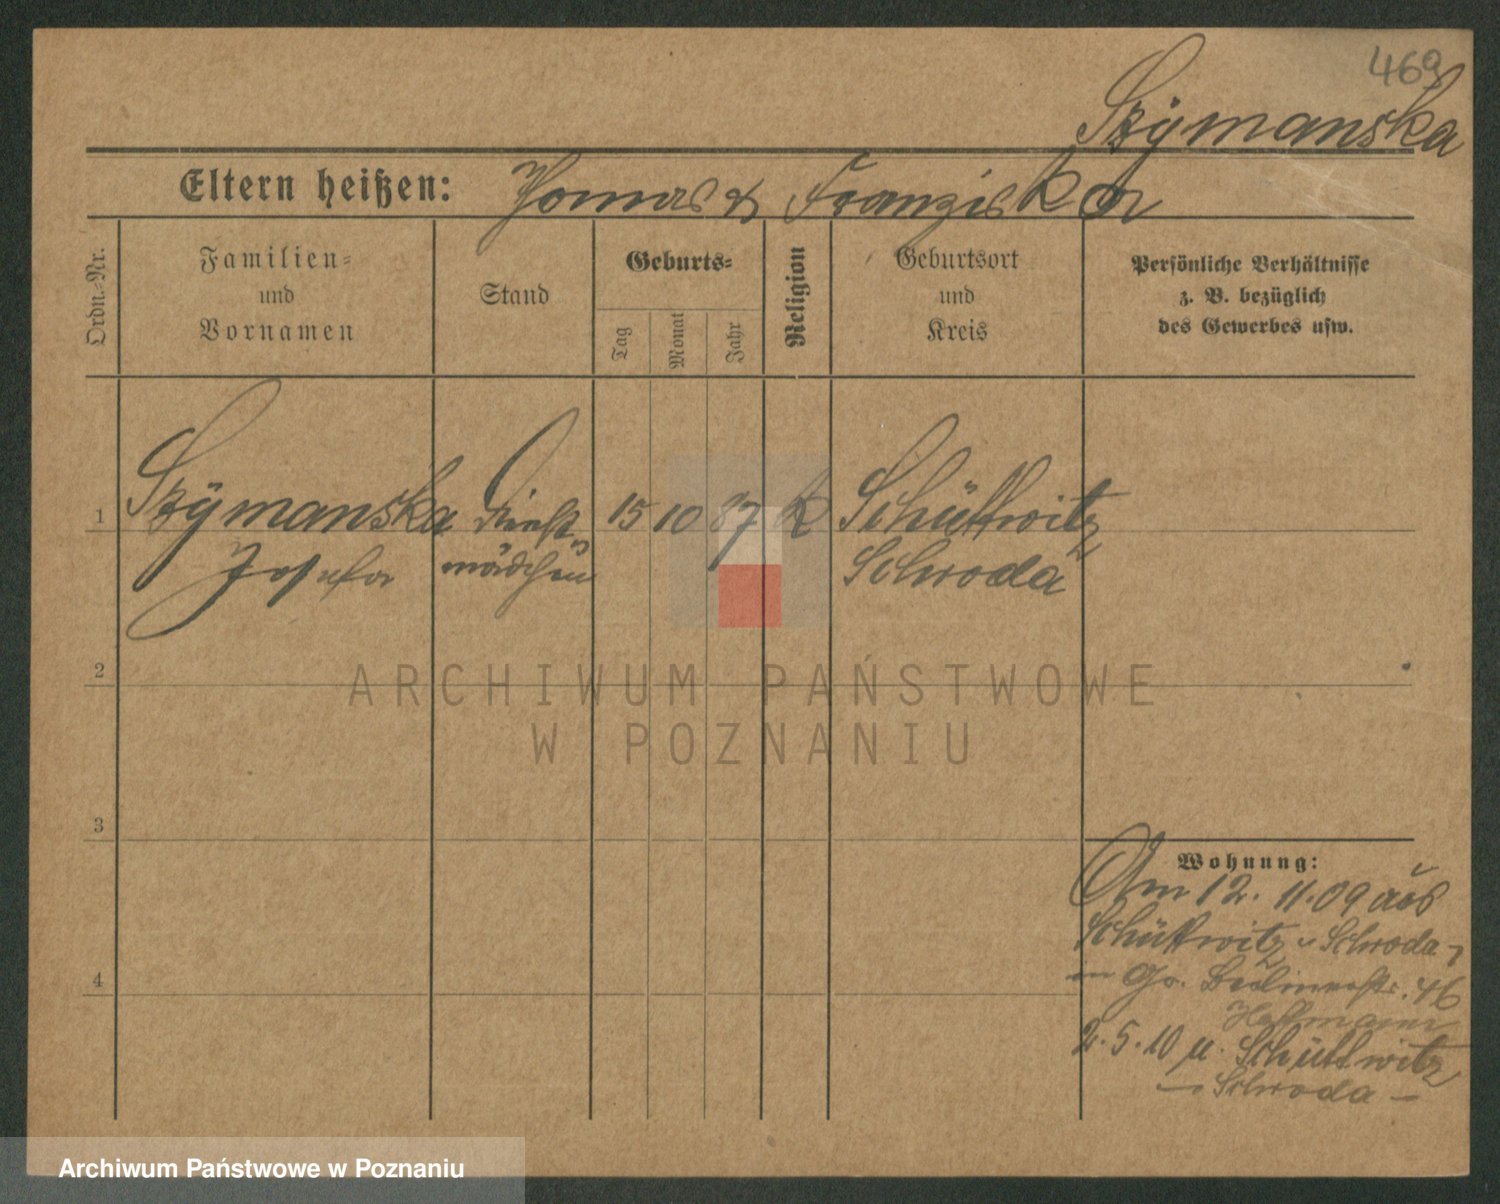 469
Szÿmanska
Eltern heißen: Thomas & Franziska
Ordn.-Nr.
Familien-
und
Vornamen
Stand
Geburts-
Tag
Monat
Jahr
Religion
Geburtsort
und
Kreis
Persönliche Verhältnisse
z. B. bezüglich
des Gewerbes usw.
1 Szÿmanska Dienst 15 10 87 k Schüttwitz
Josefa mädchen Schroda
2
ARCHIWUM PAŃSTWOWE
W POZNANIU
3
Wohnung:
Am 12. 11. 09 aus
Schüttwitz Schroda
4
Gr. Berlinerstr. 46
Hoffmann
2. 5. 10 n. Schüttwitz
Schroda
Archiwum Państwowe w Poznaniu